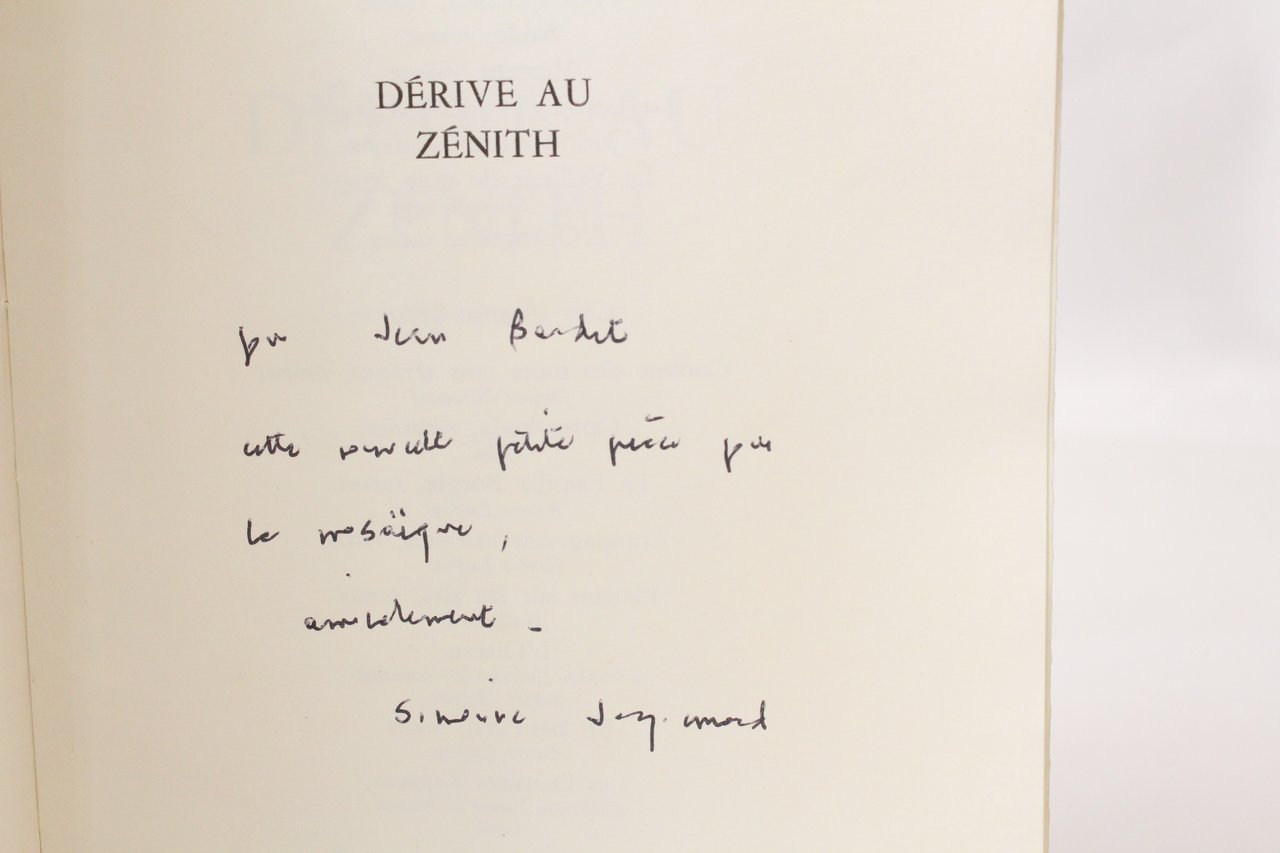 DÉRIVE AU
ZÉNITH
pour Jean Bardet
cette nouvelle petite pièce pour
la mosaïque,
amicalement _
Simone Jacquemard